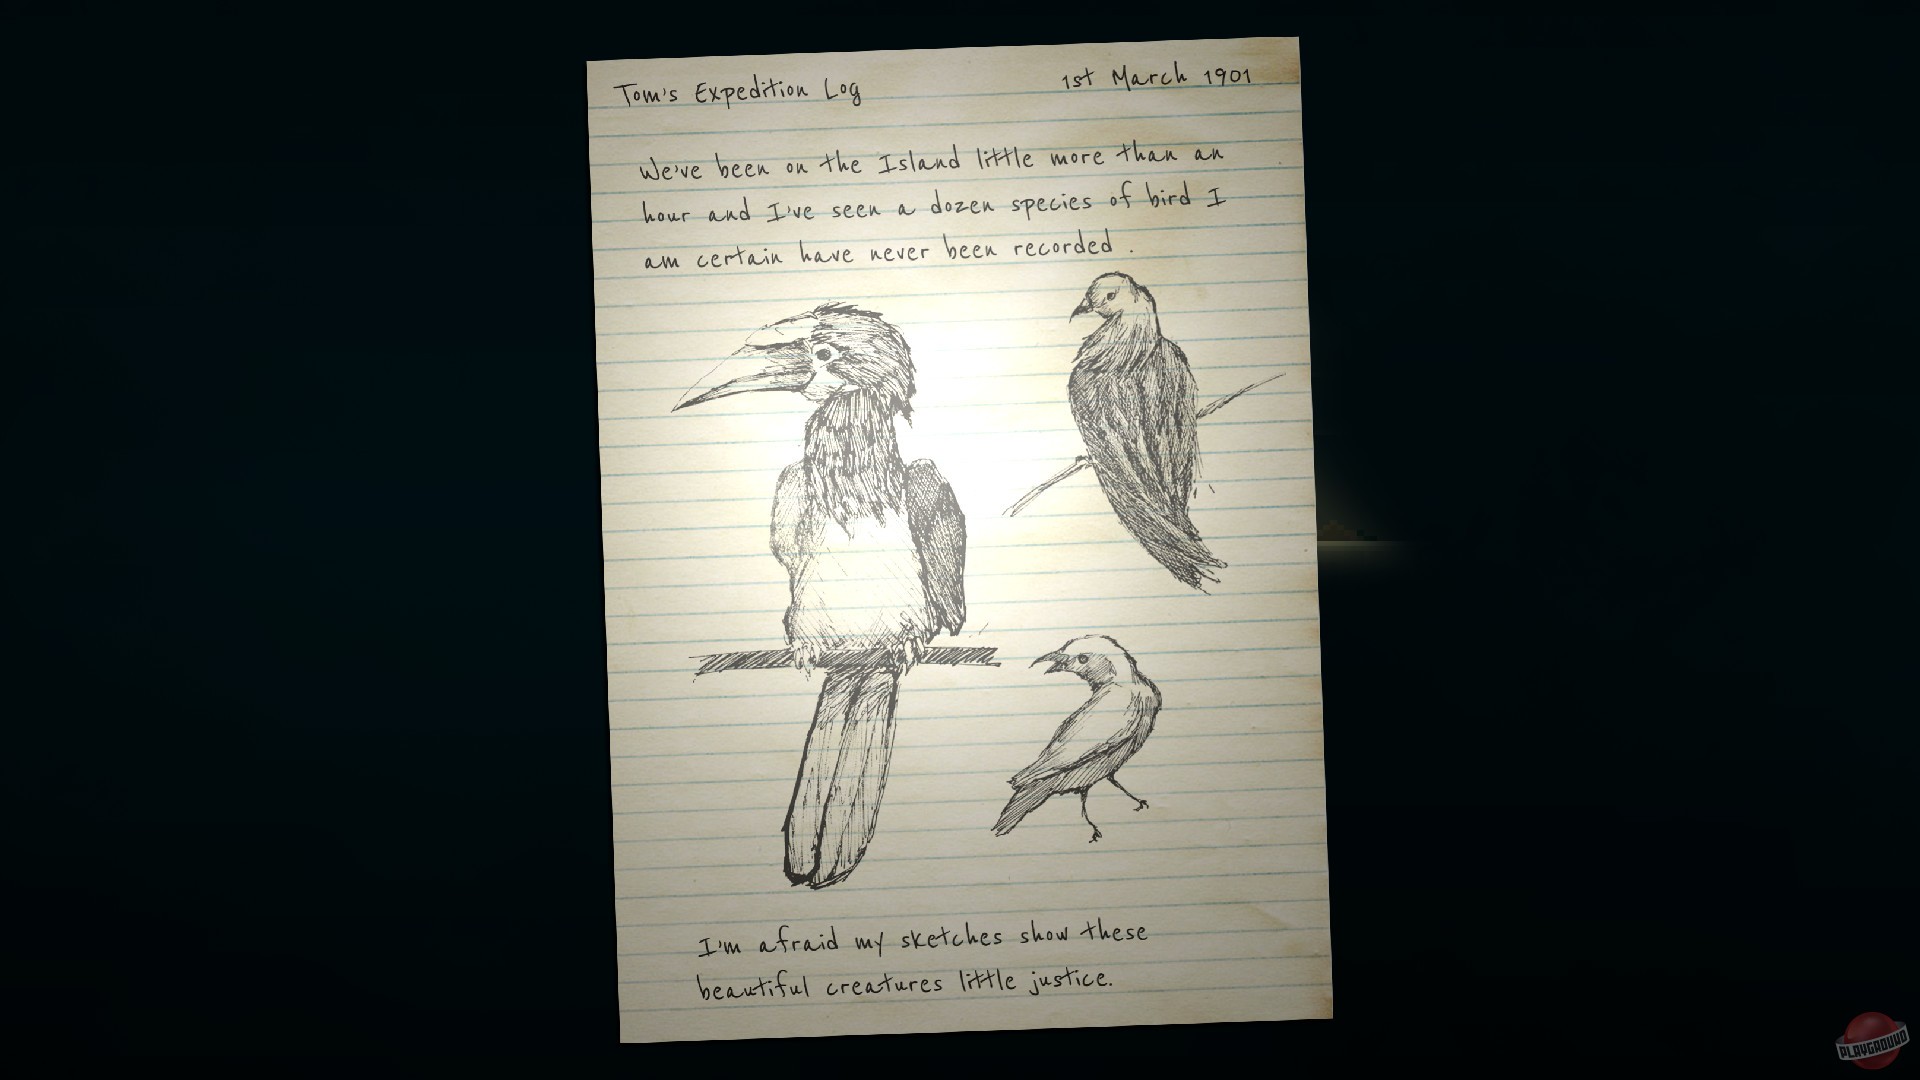 Tom's Expedition Log 1st March 1901
We've been on the Island little more than an
hour and I've seen a dozen species of bird I
am certain have never been recorded.
I'm afraid my sketches show these
beautiful creatures little justice.
PLAYGROUND